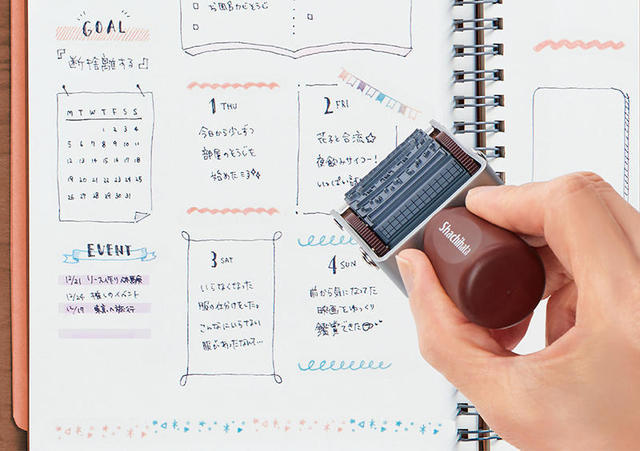 GOAL
『断捨離する』
M T W T F S S
1 2 3 4
5 6 7 8 9 10 11
12 13 14 15 16 17 18
19 20 21 22 23 24 25
26 27 28 29 30 31
EVENT
12/21 リース作り体験
12/24 推しのイベント
1 THU
今日から少しずつ
部屋のそうじを
始めた
2 FRI
花子と合流☆
夜飲みサイコー!
いっぱい話
3 SAT
いらなくなった
服の仕分けをした。
こんなにいらない
服があったなんて…
4 SUN
前から気になってた
映画をゆっくり
鑑賞できた
Shachihata